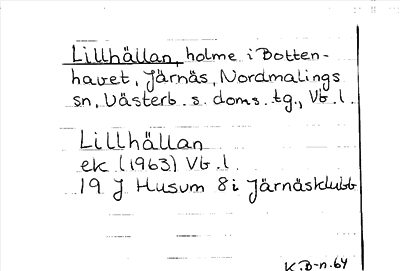 Lillhällan, holme i Botten-
havet, Järnäs, Nordmalings
sn, Västerb. s. doms. tg., Vb. l.
Lillhällan
ek. (1963) Vb. l.
19 J Husum 8 i Järnäsklubb
K.B-n. 64